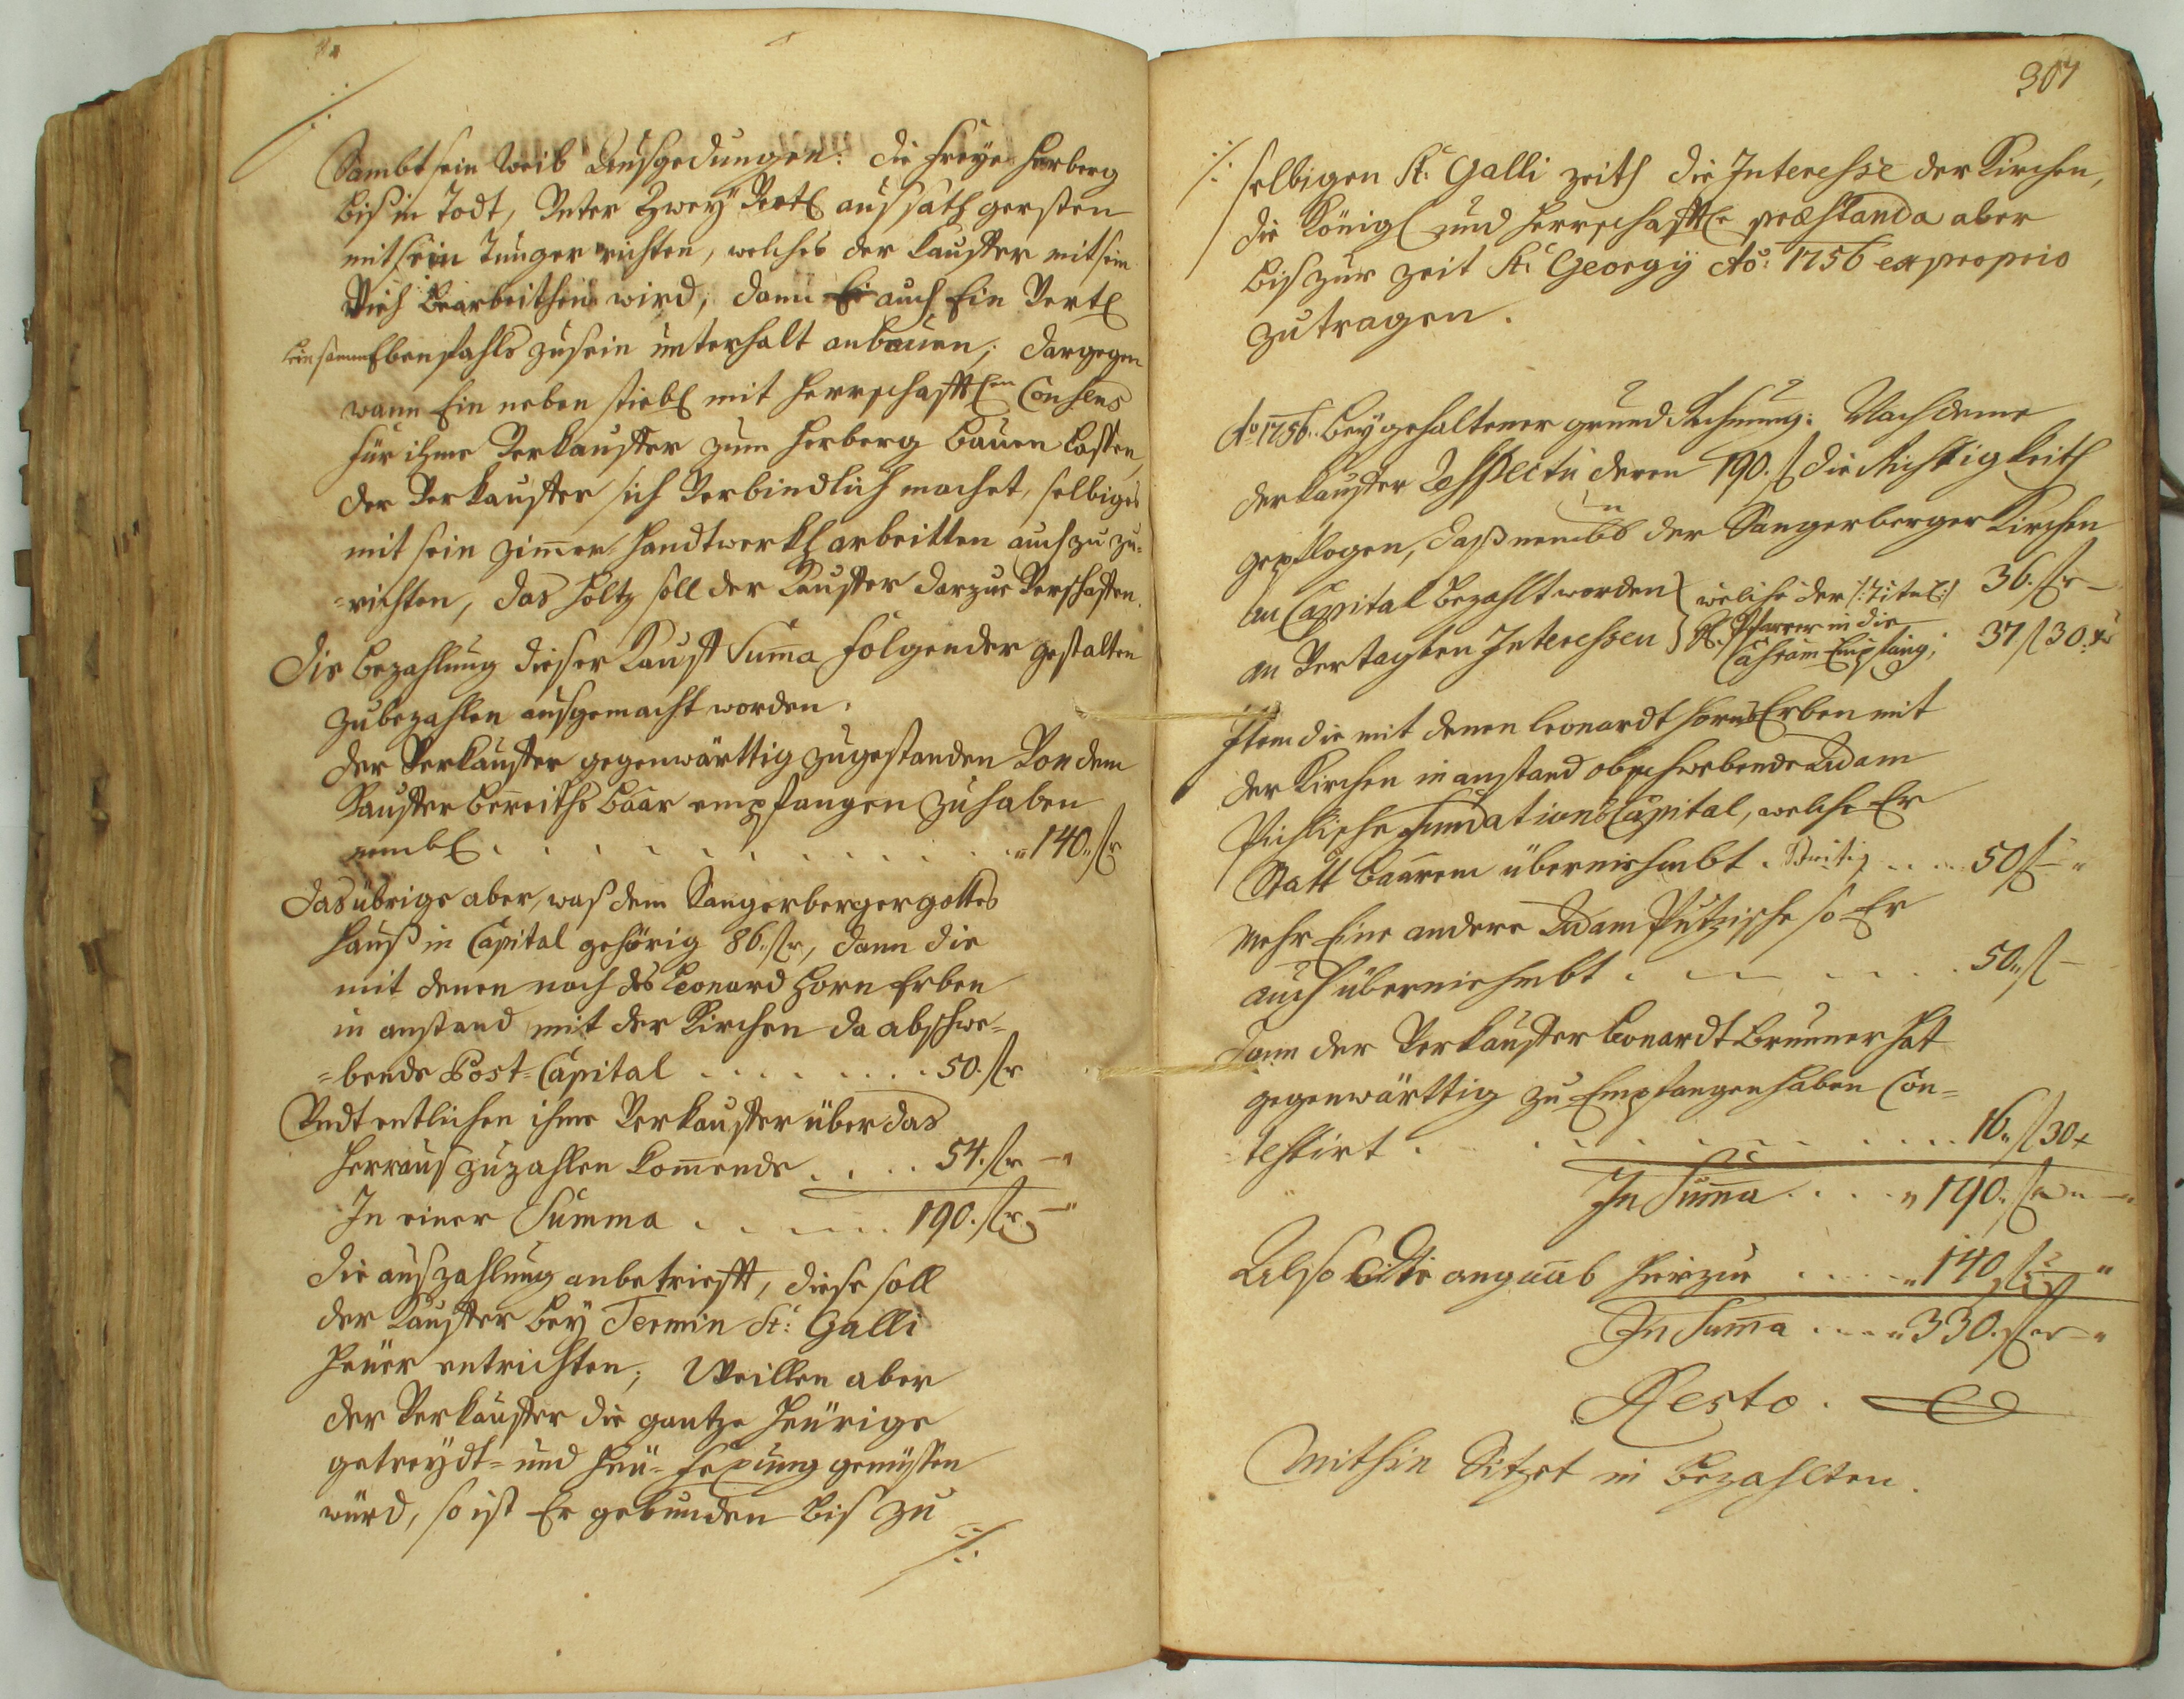 Sambt sein Weib Ausgedungen: die freye Herberg
bis in Todt, Unter Zwey Vertl aussath gersten
mit sein Tunger richten, welches der Kauffer mit sein
Vieh Bearbeithen wird, dann auch Ein Vertl
leinsamen Ebenfahls zu sein unterhalt anbauen; dargegen
wann Ein neben stiebl mit Herrschafftlen Consens
für ihme Verkauffer zum Herberg bauen lassen,
der Verkauffer sich Verbindlich machet, selbiges
mit sein Zimer Handtwerkh arbeitten auch zu zu-
=richten, das Holtz soll der Kauffer darzue Verschaffen.
Die bezahlung dieser Kauff Suma folgender gestalten
zubezahlen ausgemacht worden.
Der Verkauffer gegenwärttig zugestanden Von dem
Kauffer bereiths baar empfangen zuhaben
nembl . . . . . . . . . . „140„ fl
das übrige aber, was dem Sangerberger gottes
Hauß in Capital gehörig 86„ fl, dann die
mit denen noch des Leonard Horn Erben
in anstand mit der Kirchen da abschwe-
=bende Post=Capital . . . . . . . . 50. fl
Undt entlichen ihme Verkauffer über das
herraus zuzahlen komende . . . . 54. fl —„
In einer Summa . . . . . . 190. fl —„
die auszahlung anbetriefft, diese soll
der Kauffer bey Termin St: Galli
heuer entrichten; Weillen aber
der Verkauffer die gantze heurige
getreydt= und heu= fexung genüssen
würd, so ist Er gebunden bis zu
./.
307
./. selbigen St: Galli zeith die Interesse der Kirchen,
die Königl und Herrschafftle præstanda aber
bis zur zeit St: Georgy Ao: 1756 ex proprio
zutragen.
Ao 1756. Bey gehaltener grund Rechnung: Nachdeme
der Kauffer Respectu deren 190. fl die Richtigkeith
gepflogen, daß nembl der Sangerberger Kirchen
an Capital bezahlt worden } welche der /: Titul :/ 36. fl —
an Vertagten Interessen } H. Pfarrer in die Cassam Empfang; 37 fl 30 x
Item die mit denen Leonardt Horns Erben mit
der Kirchen in anstand obschwebende Adam
Fundations Capital, welche Er
Statt baarem übernihmbt . Streitig . . . . 50 fl —„
Mehr Eine andere Adam Putzische so Er
auch übernihmbt . . . . . . . 50„ fl —
dann der Verkauffer Leonardt Brunner hat
gegenwärttig zu Empfangen haben Con=
testirt . . . . . . . . . . 16„ fl 30 x
In Suma . . . . „190„ fl „—„
Also die angaab hierzue . . . . „140 fl „
In Suma . . . „330. fl —„
Resto .
Mithin Sitzet in bezahlten.